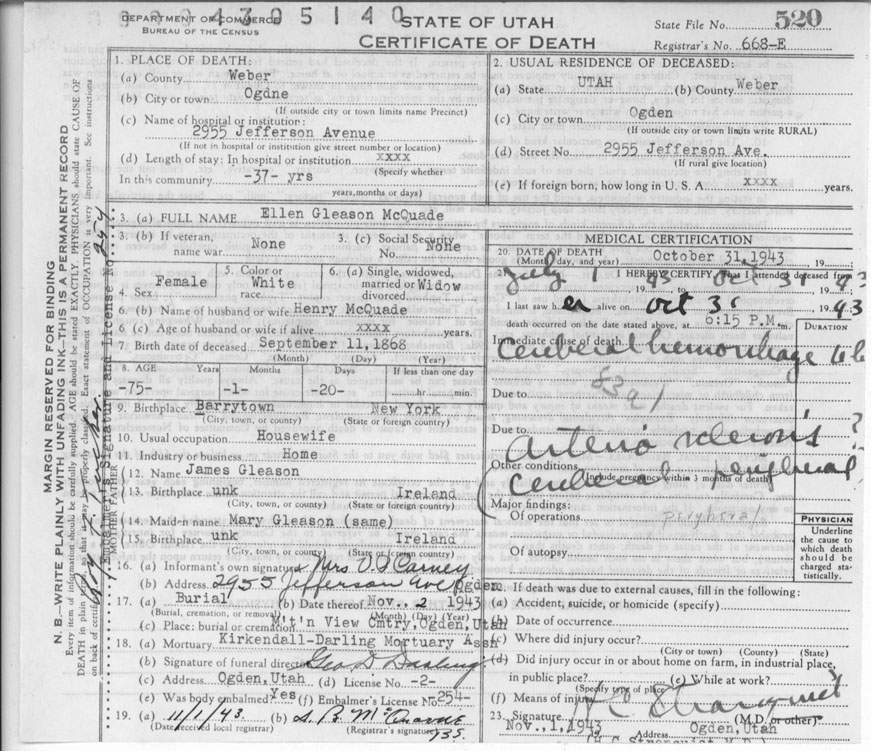 4305140
DEPARTMENT OF COMMERCE
BUREAU OF THE CENSUS
STATE OF UTAH
CERTIFICATE OF DEATH
State File No. 520
Registrar's No. 668-E
MARGIN RESERVED FOR BINDING
N. B.—WRITE PLAINLY WITH UNFADING INK—THIS IS A PERMANENT RECORD
Every item of information should be carefully supplied. AGE should be stated EXACTLY. PHYSICIANS should state CAUSE OF
DEATH in plain terms so that it may be properly classified. Exact statement of OCCUPATION is very important. See instructions
on back of certificate
Embalmer's Signature and License No. 254
1. PLACE OF DEATH:
(a) County Weber
(b) City or town Ogdne
(If outside city or town limits name Precinct)
(c) Name of hospital or institution:
2955 Jefferson Avenue
(If not in hospital or institution give street number or location)
(d) Length of stay: In hospital or institution xxxx
(Specify whether
In this community -37- yrs
years, months or days)
2. USUAL RESIDENCE OF DECEASED:
(a) State UTAH (b) County Weber
(c) City or town Ogden
(If outside city or town limits write RURAL)
(d) Street No. 2955 Jefferson Ave.
(If rural give location)
(e) If foreign born, how long in U. S. A xxxx years.
3. (a) FULL NAME Ellen Gleason McQuade
3. (b) If veteran, name war None
3. (c) Social Security No. None
4. Sex Female
5. Color or race White
6. (a) Single, widowed, married or divorced Widow
6. (b) Name of husband or wife Henry McQuade
6. (c) Age of husband or wife if alive xxxx years.
7. Birth date of deceased September 11, 1868
(Month) (Day) (Year)
8. AGE Years Months Days If less than one day
-75- -1- -20- hr. min.
9. Birthplace Barrytown New York
(City, town, or county) (State or foreign country)
10. Usual occupation Housewife
11. Industry or business Home
FATHER
12. Name James Gleason
13. Birthplace unk Ireland
(City, town, or county) (State or foreign country)
MOTHER
14. Maiden name Mary Gleason (same)
15. Birthplace unk Ireland
(City, town, or county) (State or foreign country)
16. (a) Informant's own signature Mrs O F Carney
(b) Address 2955 Jefferson Ave Ogden
17. (a) Burial (b) Date thereof Nov., 2 1943
(Burial, cremation, or removal) (Month) (Day) (Year)
(c) Place: burial or cremation M't'n View Cmtry, Ogden, Utah
18. (a) Mortuary Kirkendall-Darling Mortuary Assn
(b) Signature of funeral director Geo D Darling
(c) Address Ogden, Utah (d) License No -2-
(e) Was body embalmed? Yes (f) Embalmer's License No 254-
19. (a) 11/1/43. (b)
(Date received local registrar) (Registrar's signature)
MEDICAL CERTIFICATION
20. DATE OF DEATH October 31, 1943
(Month, day, and year) 19
21. I HEREBY CERTIFY That I attended deceased from
July 1 1943 to Oct 31 1943
I last saw her alive on Oct 31 1943
death occurred on the date stated above, at 6:15 P.M. m.
DURATION
Immediate cause of death
Cerebral hemorrhage
Due to 83a1
Due to Arterio sclerosis ?
Other conditions
(Include pregnancy within 3 months of death)
Cerebral peripheral ?
Major findings:
Of operations peripheral
Of autopsy
PHYSICIAN
Underline the cause to which death should be charged statistically.
22. If death was due to external causes, fill in the following:
(a) Accident, suicide, or homicide (specify)
(b) Date of occurrence
(c) Where did injury occur?
(City or town) (County) (State)
(d) Did injury occur in or about home on farm, in industrial place,
in public place? (e) While at work?
(Specify type of place)
(f) Means of injury
23. Signature (M.D. or other)
Nov., 1, 1943 Address Ogden, Utah